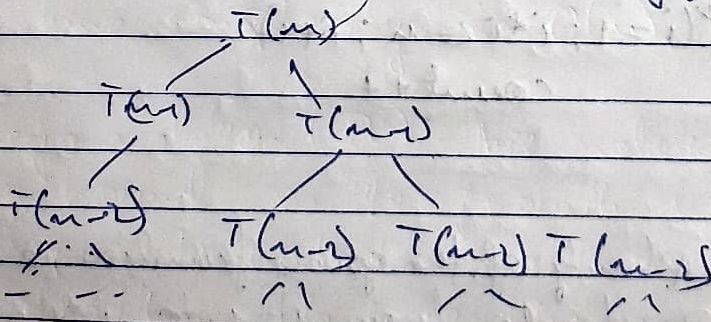 T(n)
T(n-1) T(n-1)
T(n-2) T(n-2) T(n-2) T(n-2)